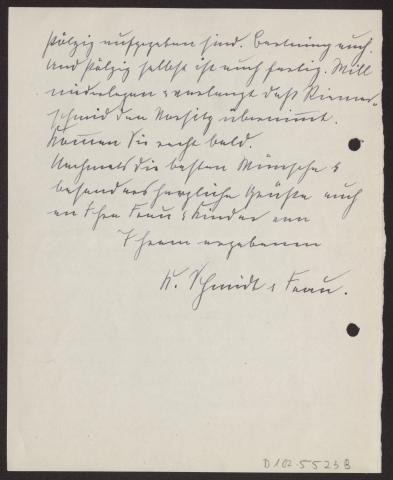 Pölzig aufgegeben sind.
Und Pölzig selbst ist auch fertig. Will
niederlegen & verlangt daß Riemer-
schmid den Vorsitz übernimmt.
Kommen Sie recht bald.
Nochmals die besten Wünsche &
besonders herzliche Grüße auch
an Ihre Frau & Kinder von
Ihrem ergebenen
K. Schmidt & Frau.
D102-5523B